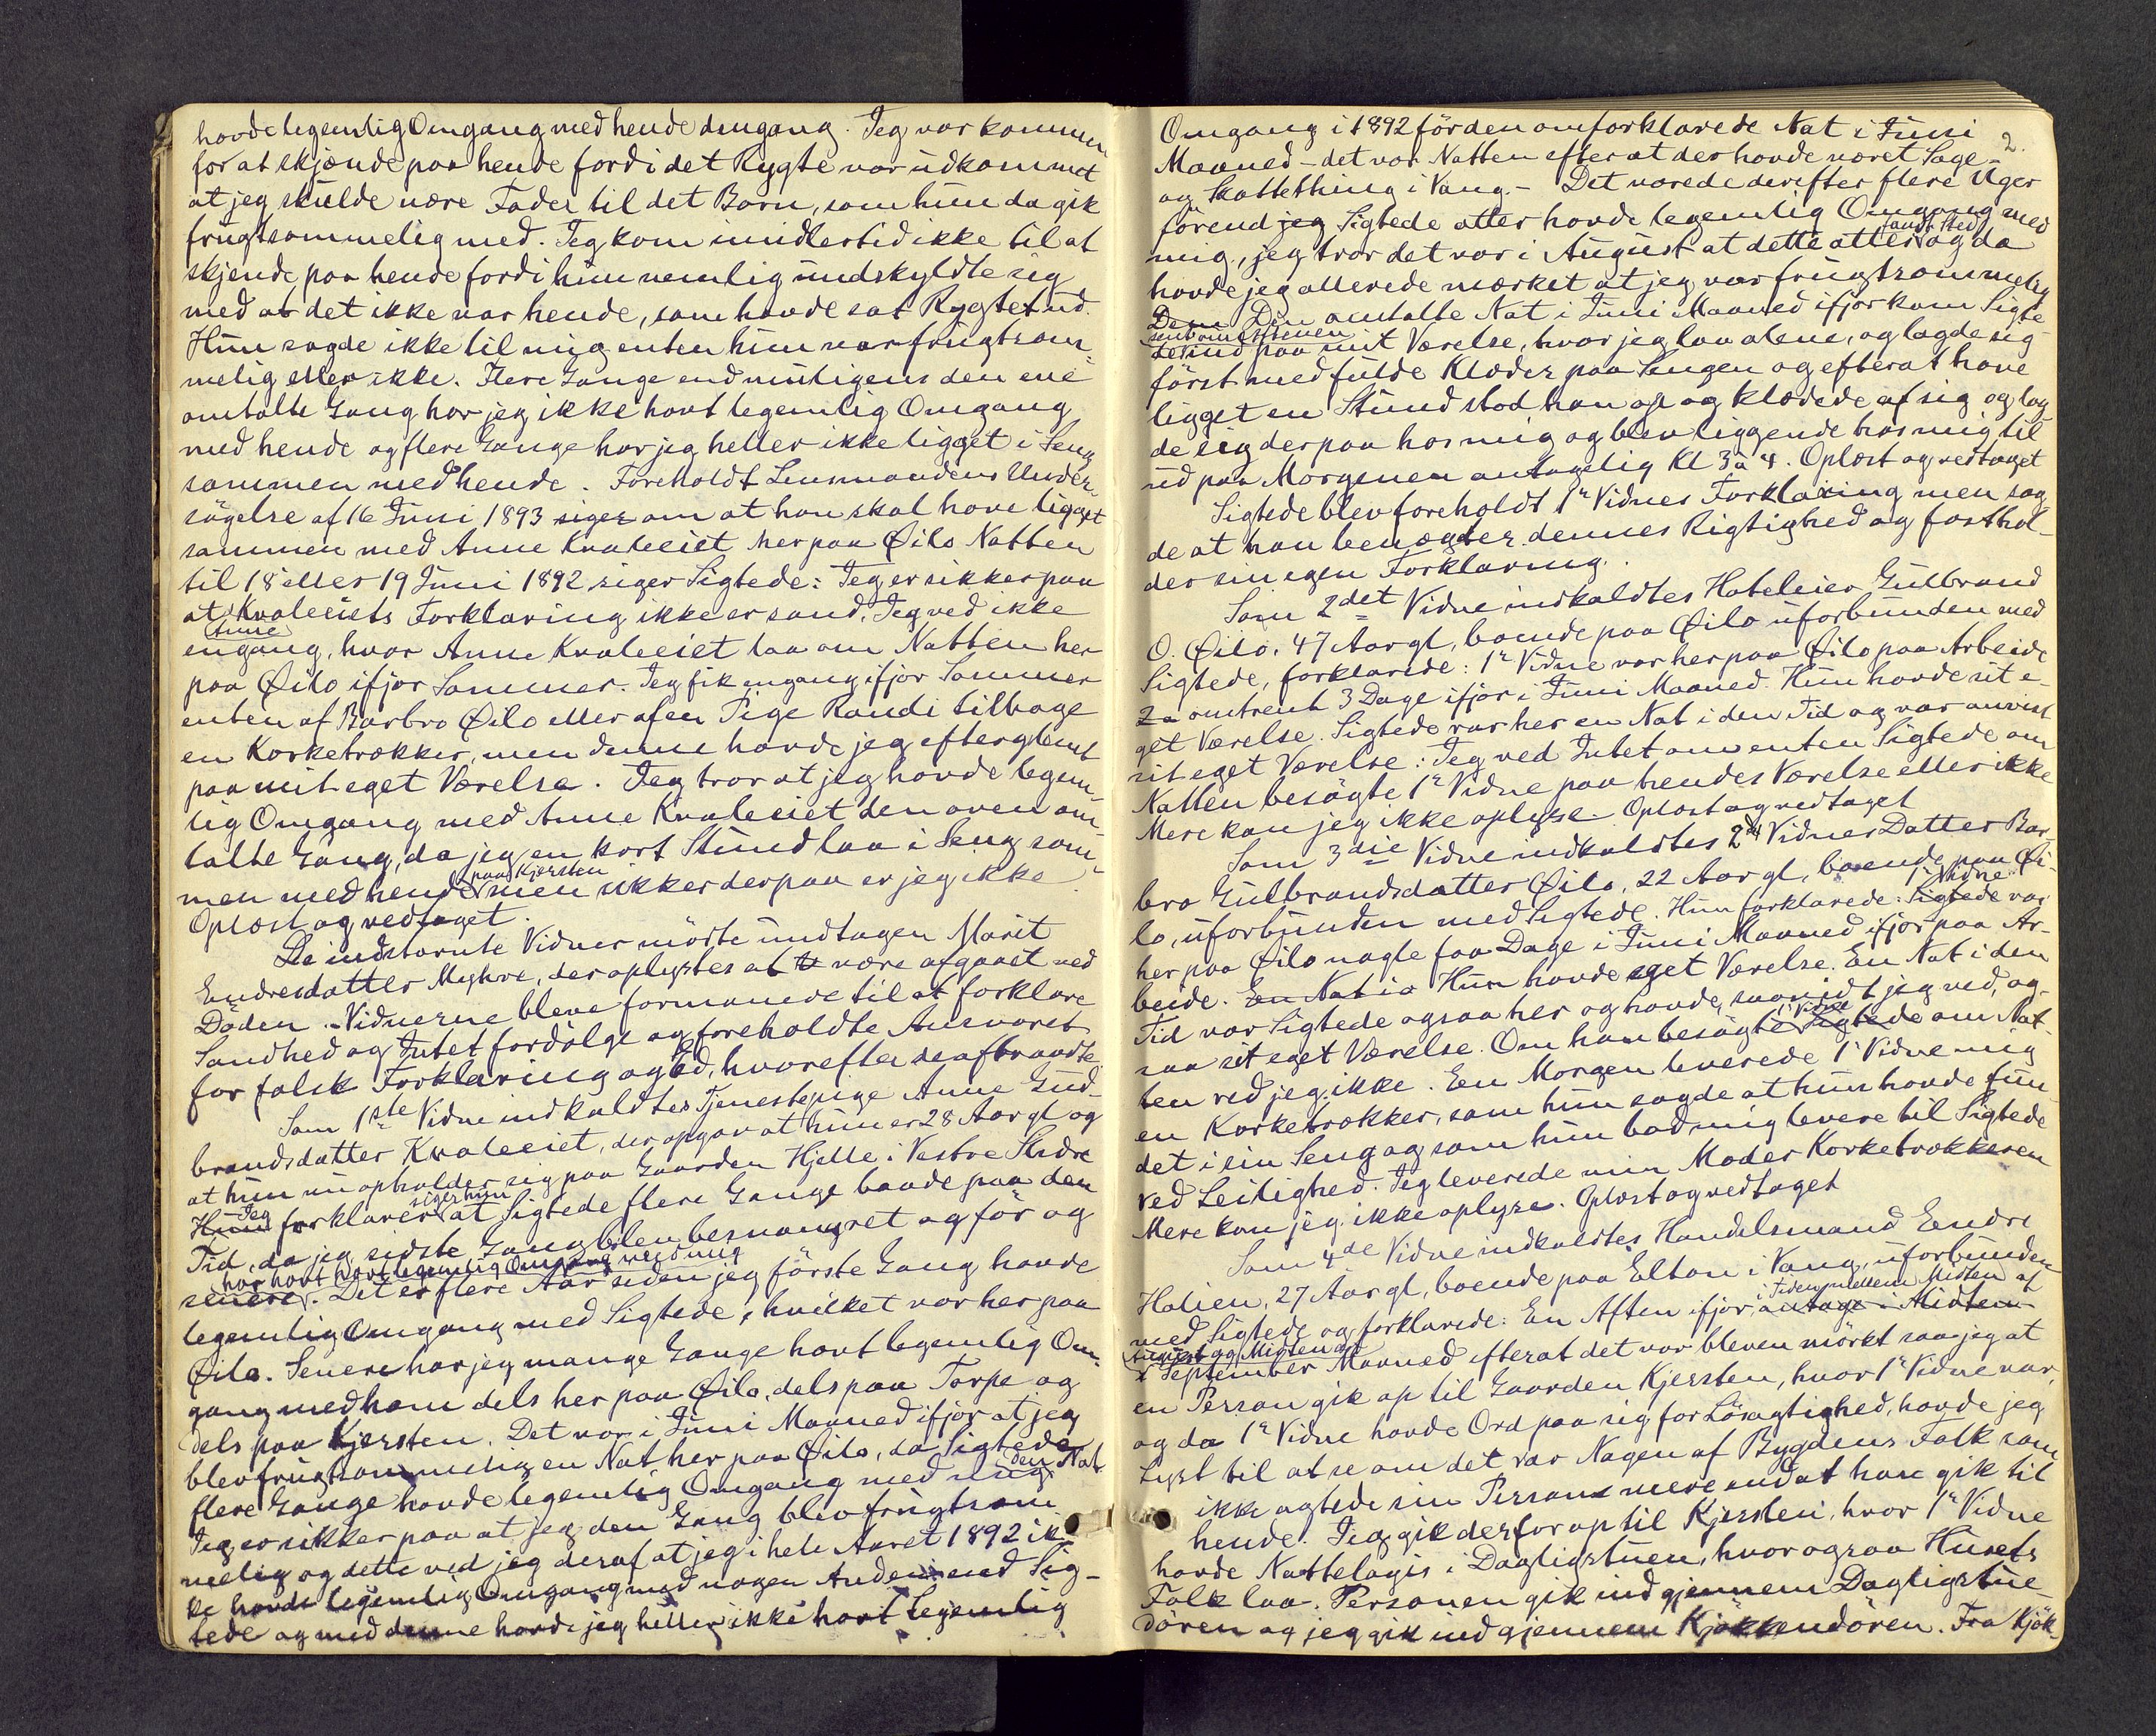 havde legemlig Omgang med hende dengang. Jeg var kommen
for at skjænde paa hende fordi det Rygte var udkommet
at jeg skulde være Fader til det Barn, som hun da gik
frugtsommelig med. Jeg kom imidlertid ikke til at
skjende paa hende fordi hun nemlig undskyldte sig
med at det ikke var hende, som havde sat Rygtet ud.
Hun sagde ikke til mig enten hun var frugtsom-
melig eller ikke. Flere Gange end muligens den ene
omtalte Gang har jeg ikke havt legemlig Omgang
med hende og flere Gange har jeg heller ikke ligget i Seng
sammen med hende. Foreholdt Lensmandens Under-
søgelse af 16 Juni 1893 siger om at han skal have ligget
sammen med Anne Kvaleeiet her paa Øilo Natten
til 18 eller 19 Juni 1892 siger Sigtede: Jeg er sikker paa
at Anne Kvaleeiets Forklaring ikke er sand. Jeg ved ikke
engang, hvor Anne Kvaleeiet laa om Natten her
paa Øilo ifjor Sommer. Jeg fik engang ifjor Sommer
enten af Barbro Øilo eller af en Pige Randi tilbage
en Korketrækker, men denne havde jeg efterglemt
paa mit eget Værelse. Jeg tror at jeg havde legem-
lig Omgang med Anne Kvaleeiet den oven om-
talte Gang, da jeg en kort Stund laa i Seng sam-
men med hende paa Kjersten men sikker derpaa er jeg ikke
Oplæst og vedtaget.
De indstævnte Vidner mødte undtagen Marit
Endresdatter Myhre, der oplystes at være afgaaet ved
Døden. - Vidnerne bleve formanede til at forklare
Sandhed og Intet fordølge og foreholdte Ansvaret
for falsk Forklaring og Ed, hvorefter de afbrandte
Som 1ste Vidne indkaldtes Tjenestepige Anne Gud-
brandsdatter Kvaleeiet, der opgav at hun er 28 Aar gl og
at hun nu opholder sig paa Gaarden Hjelle i Vestre Slidre
Hun Jeg forklarer siger hun at Sigtede flere Gange baade paa den
Tid, da jeg sidste Gang blev besvangret og før og
senere har havt havt legemlig Omgang med mig. Det er flere Aar siden jeg første Gang havde
legemlig Omgang med Sigtede, hvilket var her paa
Øilo. Senere har jeg mange Gange havt legemlig Om-
gang med ham dels her paa Øilo, dels paa Torpe og
dels paa Kjersten. Det var i Juni Maaned ifjor at jeg
blev frugtsommelig en Nat her paa Øilo, da Sigtede
flere Gange havde legemlig Omgang med mig den Nat
Jeg er sikker paa at jeg den Gang blev frugtsom
melig og dette ved jeg deraf at jeg i hele Aaret 1892 ik-
ke havde legemlig Omgang med nogen Anden end Sig-
tede og med denne havde jeg heller ikke havt legemlig
2.
Omgang i 1892 før den omforklarede Nat i Juni
Maaned - det var Natten efter at der havde været Sage-
og Skattething i Vang. - Det varede derefter flere Uger
førend jeg Sigtede atter havde legemlig Omgang med
mig, jeg tror det var i August at dette atter fandt Sted og da
havde jeg allerede mærket at jeg var frugtsommelig
Den Den omtalte Nat i Juni Maaned ifjor kom Sigte-
de sent om Aftenen ind paa mit Værelse, hvor jeg laa alene, og lagde sig
først med fulde Klæder paa Sengen og efterat have
ligget en Stund stod han op og klædede af sig og lag
de sig derpaa hos mig og blev liggende hos mig til
ud paa Morgenen antagelig Kl 3 à 4. Oplæst og vedtaget
Sigtede blev foreholdt 1e Vidnes Forklaring men sag
de at han benægter dennes Rigtighed og fasthol-
der sin egen Forklaring.
Som 2det Vidne indkaldtes Hoteleier Gulbrand
O. Øilo, 47 Aar gl, boende paa Øilo uforbunden med
Sigtede, forklarede: 1e Vidne var her paa Øilo paa Arbeide
2 a omtrent 3 Dage ifjor i Juni Maaned. Hun havde sit e-
get Værelse. Sigtede var her en Nat i den Tid og var anvist
sit eget Værelse: Jeg ved Intet om enten Sigtede om
Natten besøgte 1e Vidne paa hendes Værelse eller ikke
Mere kan jeg ikke oplyse. Oplæst og vedtaget
Som 3die Vidne indkaldtes 2det Vidnes Datter Bar-
bro Gulbrandsdatter Øilo, 22 Aar gl, boende paa Øi-
lo, uforbunden med Sigtede. Hun forklarede: Sigtede 1e Vidne var
her paa Øilo nogle faa Dage i Juni Maaned ifjor paa Ar-
beide. En Nat i a Hun havde eget Værelse. En Nat i den
Tid var Sigtede ogsaa her og havde, saavidt jeg ved, og-
saa sit eget Værelse. Om han besøgte Sigtede 1e Vidne om Nat-
ten ved jeg ikke. En Morgen leverede 1e Vidne mig
en Korketrækker, som hun sagde at hun havde fun
det i sin Seng og som hun bad mig levere til Sigtede
ved Leilighed. Jeg leverede min Moder Korketrækkeren
Mere kan jeg ikke oplyse. Oplæst og vedtaget
Som 4de Vidne indkaldtes Handelsmand Endre
Halien, 27 Aar gl, boende paa Elton i Vang, uforbunden
med Sigtede og forklarede: En Aften ifjor, antage i Midten i Tiden mellem Midten af
August og Midten af September Maaned efterat det var bleven mørkt saa jeg at
en Person gik op til Gaarden Kjersten, hvor 1e Vidne var,
og da 1e Vidne havde Ord paa sig for Løsagtighed, havde jeg
Lyst til at se om det var Nogen af Bygdens Folk som
ikke agtede sin Person mere end at han gik til
hende. Jeg gik derfor op til Kjersten, hvor 1e Vidne
havde Nattelogis i Dagligstuen, hvor ogsaa Husets
Folk laa. Personen gik ind gjennem Dagligstue-
døren og jeg gik ind gjennem Kjøkkendøren. Fra Kjøk-